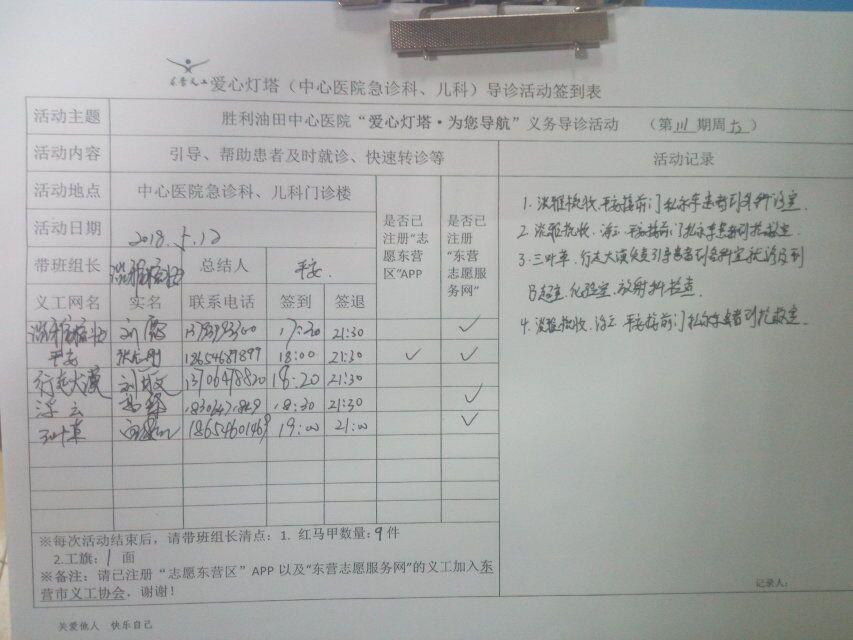 东营义工 爱心灯塔（中心医院急诊科、儿科）导诊活动签到表
活动主题 胜利油田中心医院“爱心灯塔·为您导航”义务导诊活动 （第 期周五）
活动内容 引导、帮助患者及时就诊、快速转诊等 活动记录
活动地点 中心医院急诊科、儿科门诊楼
活动日期 2018.5.12
是否已注册“志愿东营区”APP
是否已注册“东营志愿服务网”
带班组长 总结人 平安
义工网名 实名 联系电话 签到 签退
刘 17:30 21:30 ✓
平安 18654687897 18:00 21:30 ✓ ✓
行走大漠 刘 文 13706478820 18:20 21:30
浮云 18:30 21:30 ✓
三叶草 19:00 21:00 ✓
1. 平安接前门 患者到 科诊室.
2. 浮云.平安接前门 患者到抢救室.
3.三叶草.行走大漠 引导患者到各科室就诊及到
B超室.化验室.放射科检查.
4. 浮云.平安接前门 患者到抢救室.
※每次活动结束后，请带班组长清点：1. 红马甲数量：9件
2.工旗：1 面
※备注：请已注册“志愿东营区”APP 以及“东营志愿服务网”的义工加入东
营市义工协会，谢谢！
记录人：
关爱他人 快乐自己